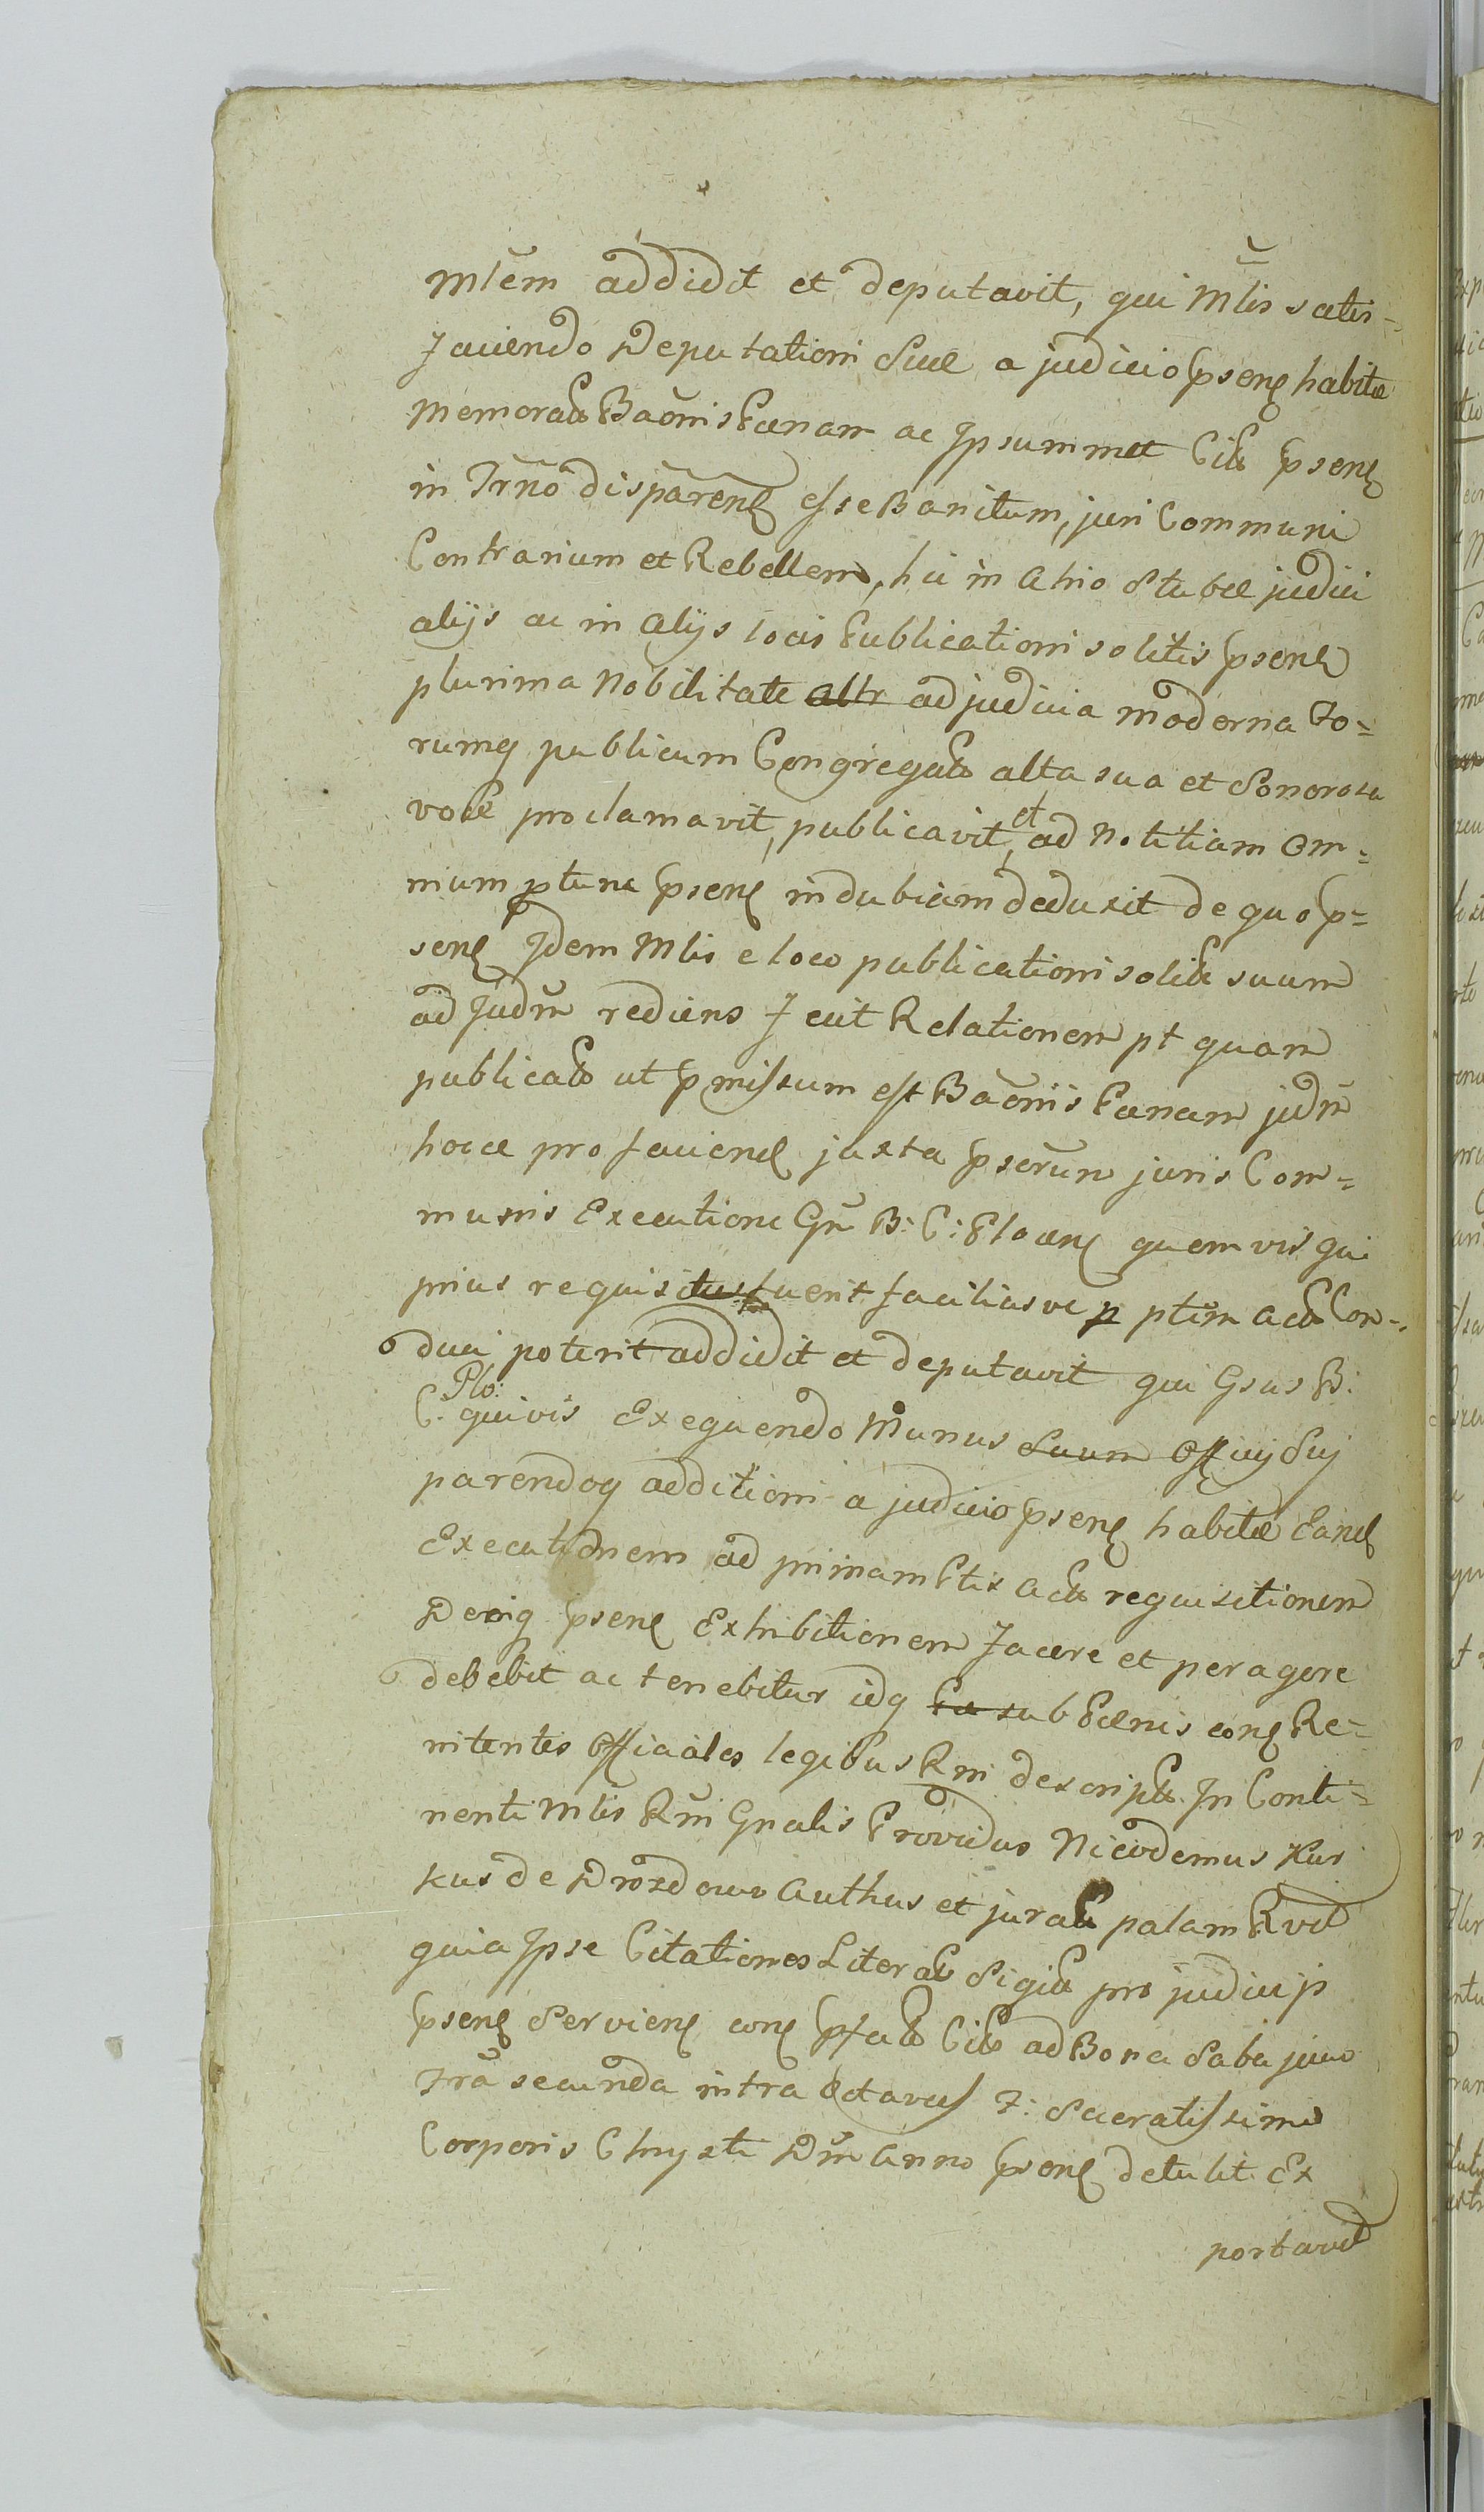 Mlem addidit et deputavit, qui Mlis satis-
faciendo Deputationi Suæ a judicio pseñ habitæ
memoratæ Baõnis Pœnam ac Ipsummet Cit pseñ
in Trño dispareñ esse Banitum, juri Communi
Contrarium et Rebellem, hic in Atrio Stubæ judici
alijs ac in alijs locis Publicationi solitis pseñ
plurima Nobilitate altr ad judicia moderna Fo=
rumq publicum Congregata alta sua et Sonorosa
voce proclamavit, publicavit, et ad Notitiam Om=
nium ptunc pseñ indubiam deduxit de quo p=
señ Idem Mlis e loco publicationi solito suum
ad Judm rediens fecit Relationem pt quam
publicato ut pmissum est Baõnis Pœnam judm
hocce pro facienđ juxta pserum juris Com=
munis Executione Gm B: C: Plocen quemvis qui
prius requisitus fuerit faciliusve p ptem actor Con-
duci poterit addidit et deputavit qui Gsus B:
C. Plo: quivis Exequendo Munus Suum Officij Sui
parendoq additioni a judicio pseñ habitæ Eanđ
Executionem ad primam Ptis Actor requisitionem
Deciq pseñ Exhibitionem facere et peragere
debebit ac tenebitur idq Pœ sub Pœnis con Re=
nitentes Officiales legibus Rni descriptis. In Conti=
nenti Mlis Rni Gnalis Providus Nicodemus Kur
kus de Drozdowo Authus et jurat palam Rvit
quia Ipse Citationes Literat Sigil pro judicijs
pseñ Servien con pfato Cito ad Bona Saba juuo
Fra secunda intra Octavas F: Sacratissimi
Corporis Chrysti Dm Anno pseñ detulit Ex
portavit